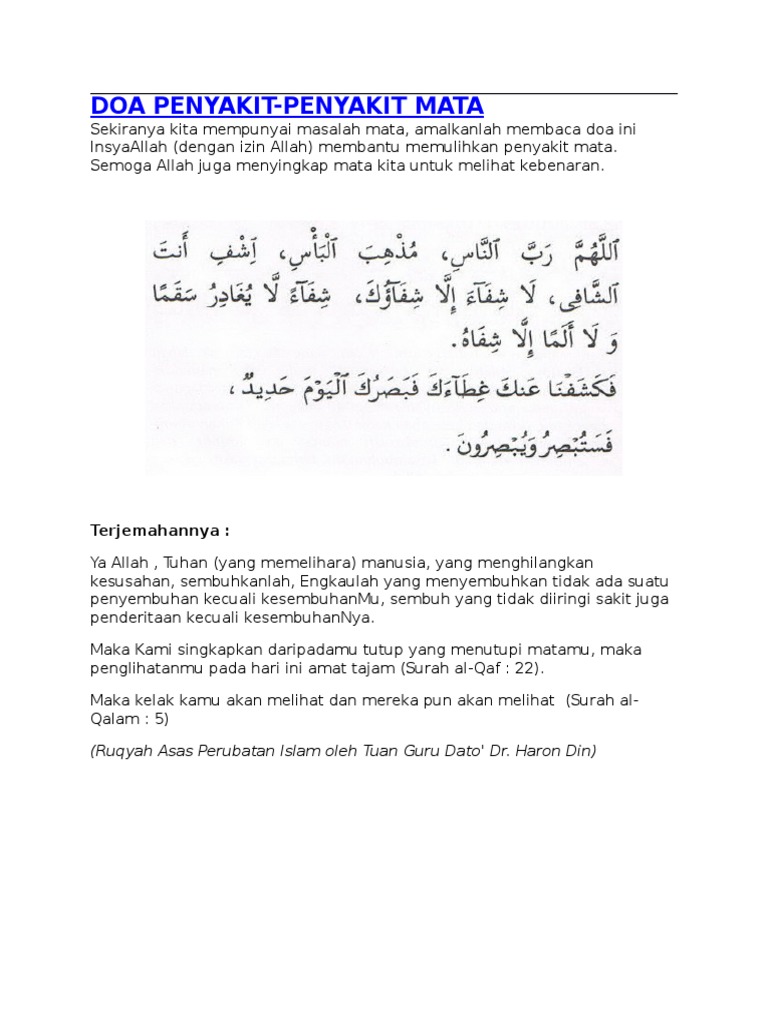 DOA PENYAKIT-PENYAKIT MATA
Sekiranya kita mempunyai masalah mata, amalkanlah membaca doa ini
InsyaAllah (dengan izin Allah) membantu memulihkan penyakit mata.
Semoga Allah juga menyingkap mata kita untuk melihat kebenaran.
ٱللَّهُمَّ رَبَّ ٱلنَّاسِ، مُذْهِبَ ٱلْبَأْسِ، اِشْفِ أَنتَ
ٱلشَّافِى، لَا شِفَآءَ إِلَّا شِفَآؤُكَ، شِفَآءً لَّا يُغَادِرُ سَقَمًا
وَ لَا أَلَمًا إِلَّا شِفَاهُ.
فَكَشَفْنَا عَنكَ غِطَآءَكَ فَبَصَرُكَ ٱلْيَوْمَ حَدِيدٌ،
فَسَتُبْصِرُ وَيُبْصِرُونَ.
Terjemahannya :
Ya Allah , Tuhan (yang memelihara) manusia, yang menghilangkan
kesusahan, sembuhkanlah, Engkaulah yang menyembuhkan tidak ada suatu
penyembuhan kecuali kesembuhanMu, sembuh yang tidak diiringi sakit juga
penderitaan kecuali kesembuhanNya.
Maka Kami singkapkan daripadamu tutup yang menutupi matamu, maka
penglihatanmu pada hari ini amat tajam (Surah al-Qaf : 22).
Maka kelak kamu akan melihat dan mereka pun akan melihat  (Surah al-
Qalam : 5)
(Ruqyah Asas Perubatan Islam oleh Tuan Guru Dato' Dr. Haron Din)